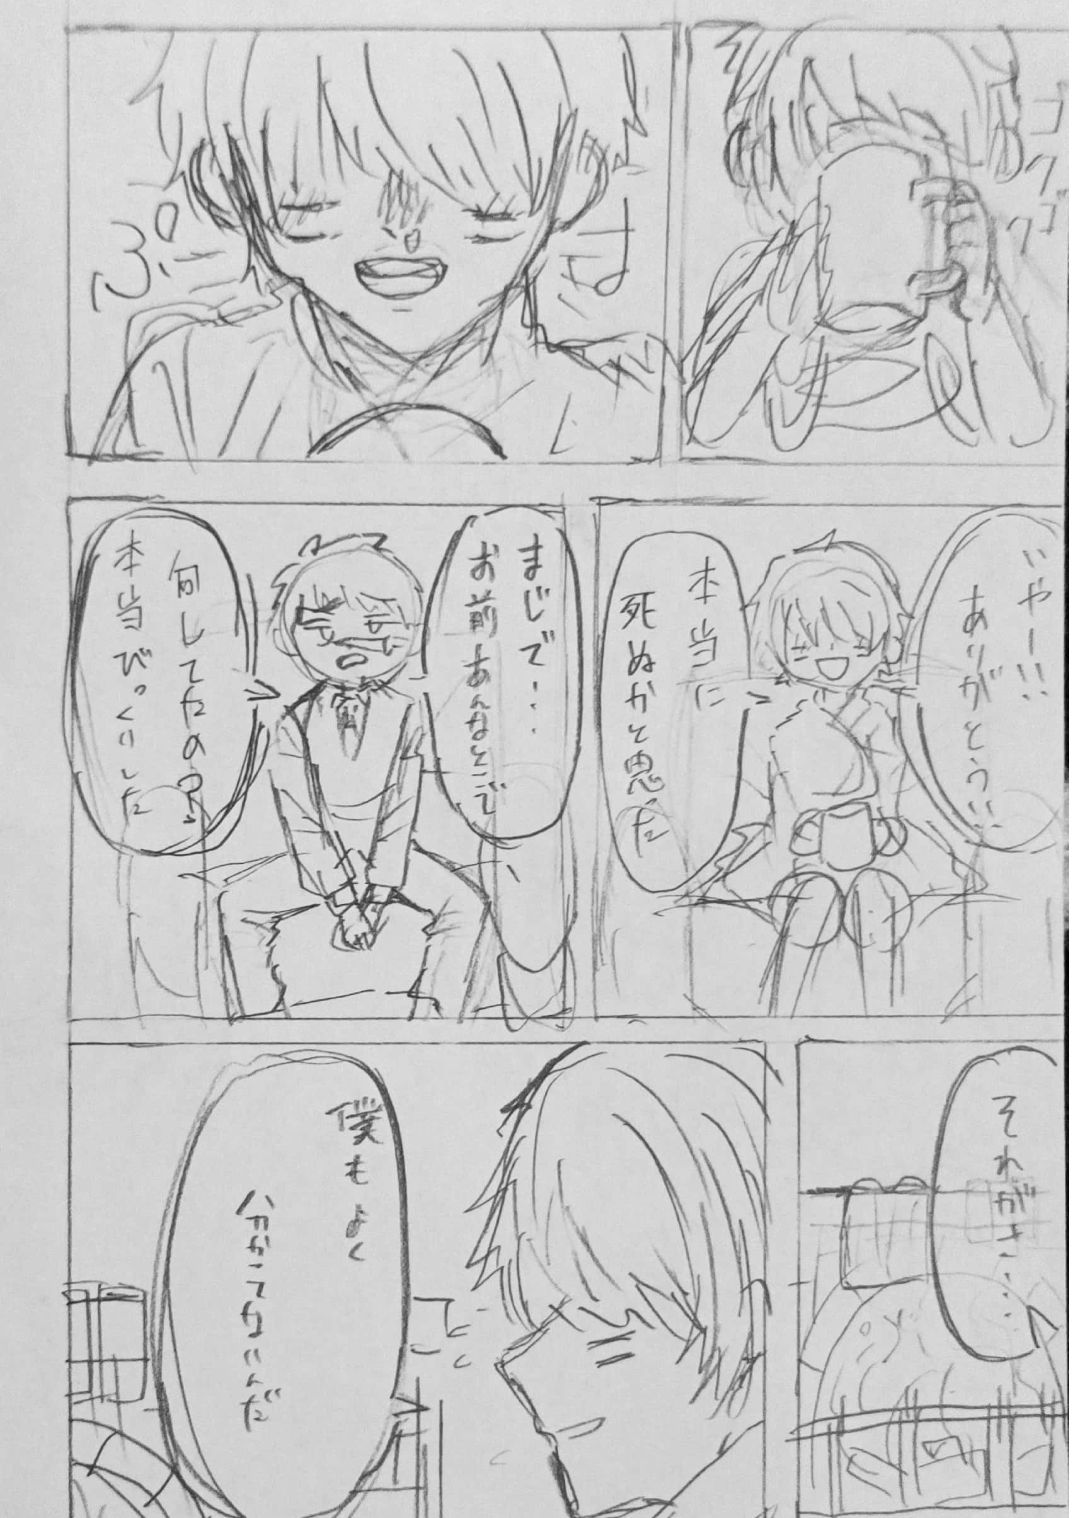 ゴク
ゴク
ぷ
は
いやー!!
ありがとう!!
本当に
死ぬかと思った
まじで・・・
お前あんなとこで
何してたの?
本当びっくりした
それがさ・・・
僕もよく
分かってないんだ